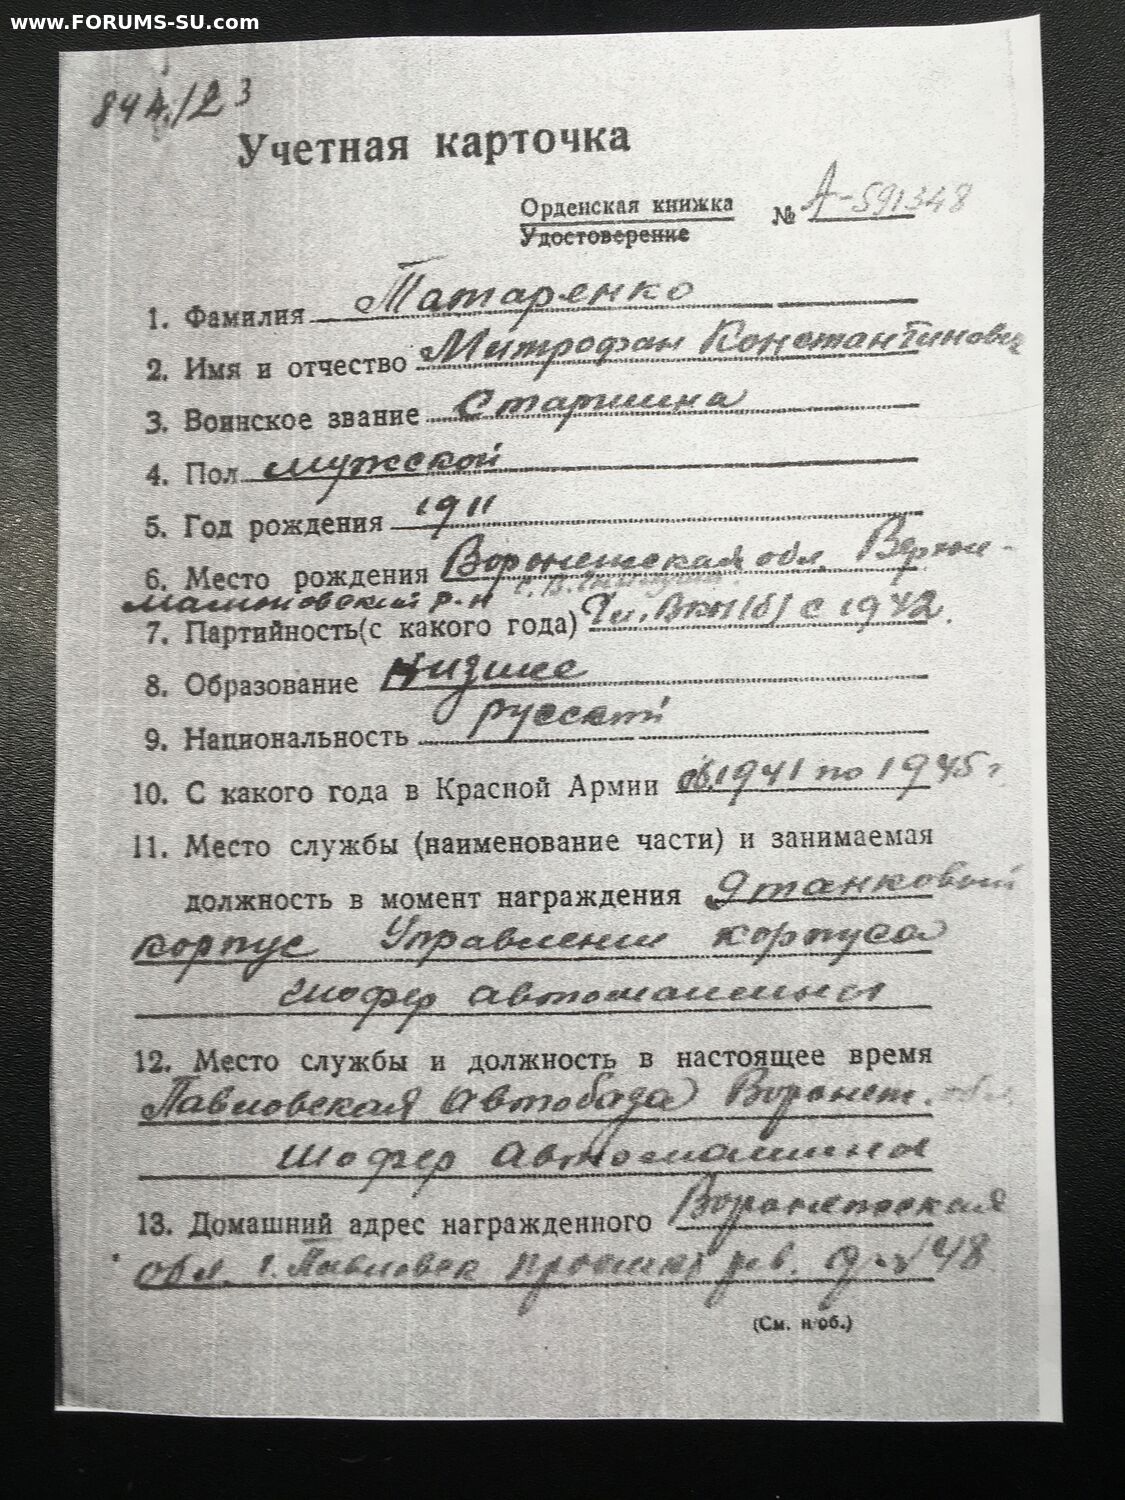 www.FORUMS-SU.com
844./23
Учетная карточка
Орденская книжка № А-591348
Удостоверение
1. Фамилия Татаренко
2. Имя и отчество Митрофан Константинович
3. Воинское звание Старшина
4. Пол мужской
5. Год рождения 1911
6. Место рождения Воронежская обл. Верхне-
мамоновский р-н
7. Партийность(с какого года) Чл. ВКП(б) с 1942.
8. Образование Низшее
9. Национальность русский
10. С какого года в Красной Армии 1941 по 1945 г
11. Место службы (наименование части) и занимаемая
должность в момент награждения 9 танковый
корпус Управление корпуса
шофер автомашины
12. Место службы и должность в настоящее время
Павловская Автобаза Воронеж. обл.
шофер Автомашины
13. Домашний адрес награжденного Воронежская
обл. г. Павловск рев. д. № 48
(См. н/об.)